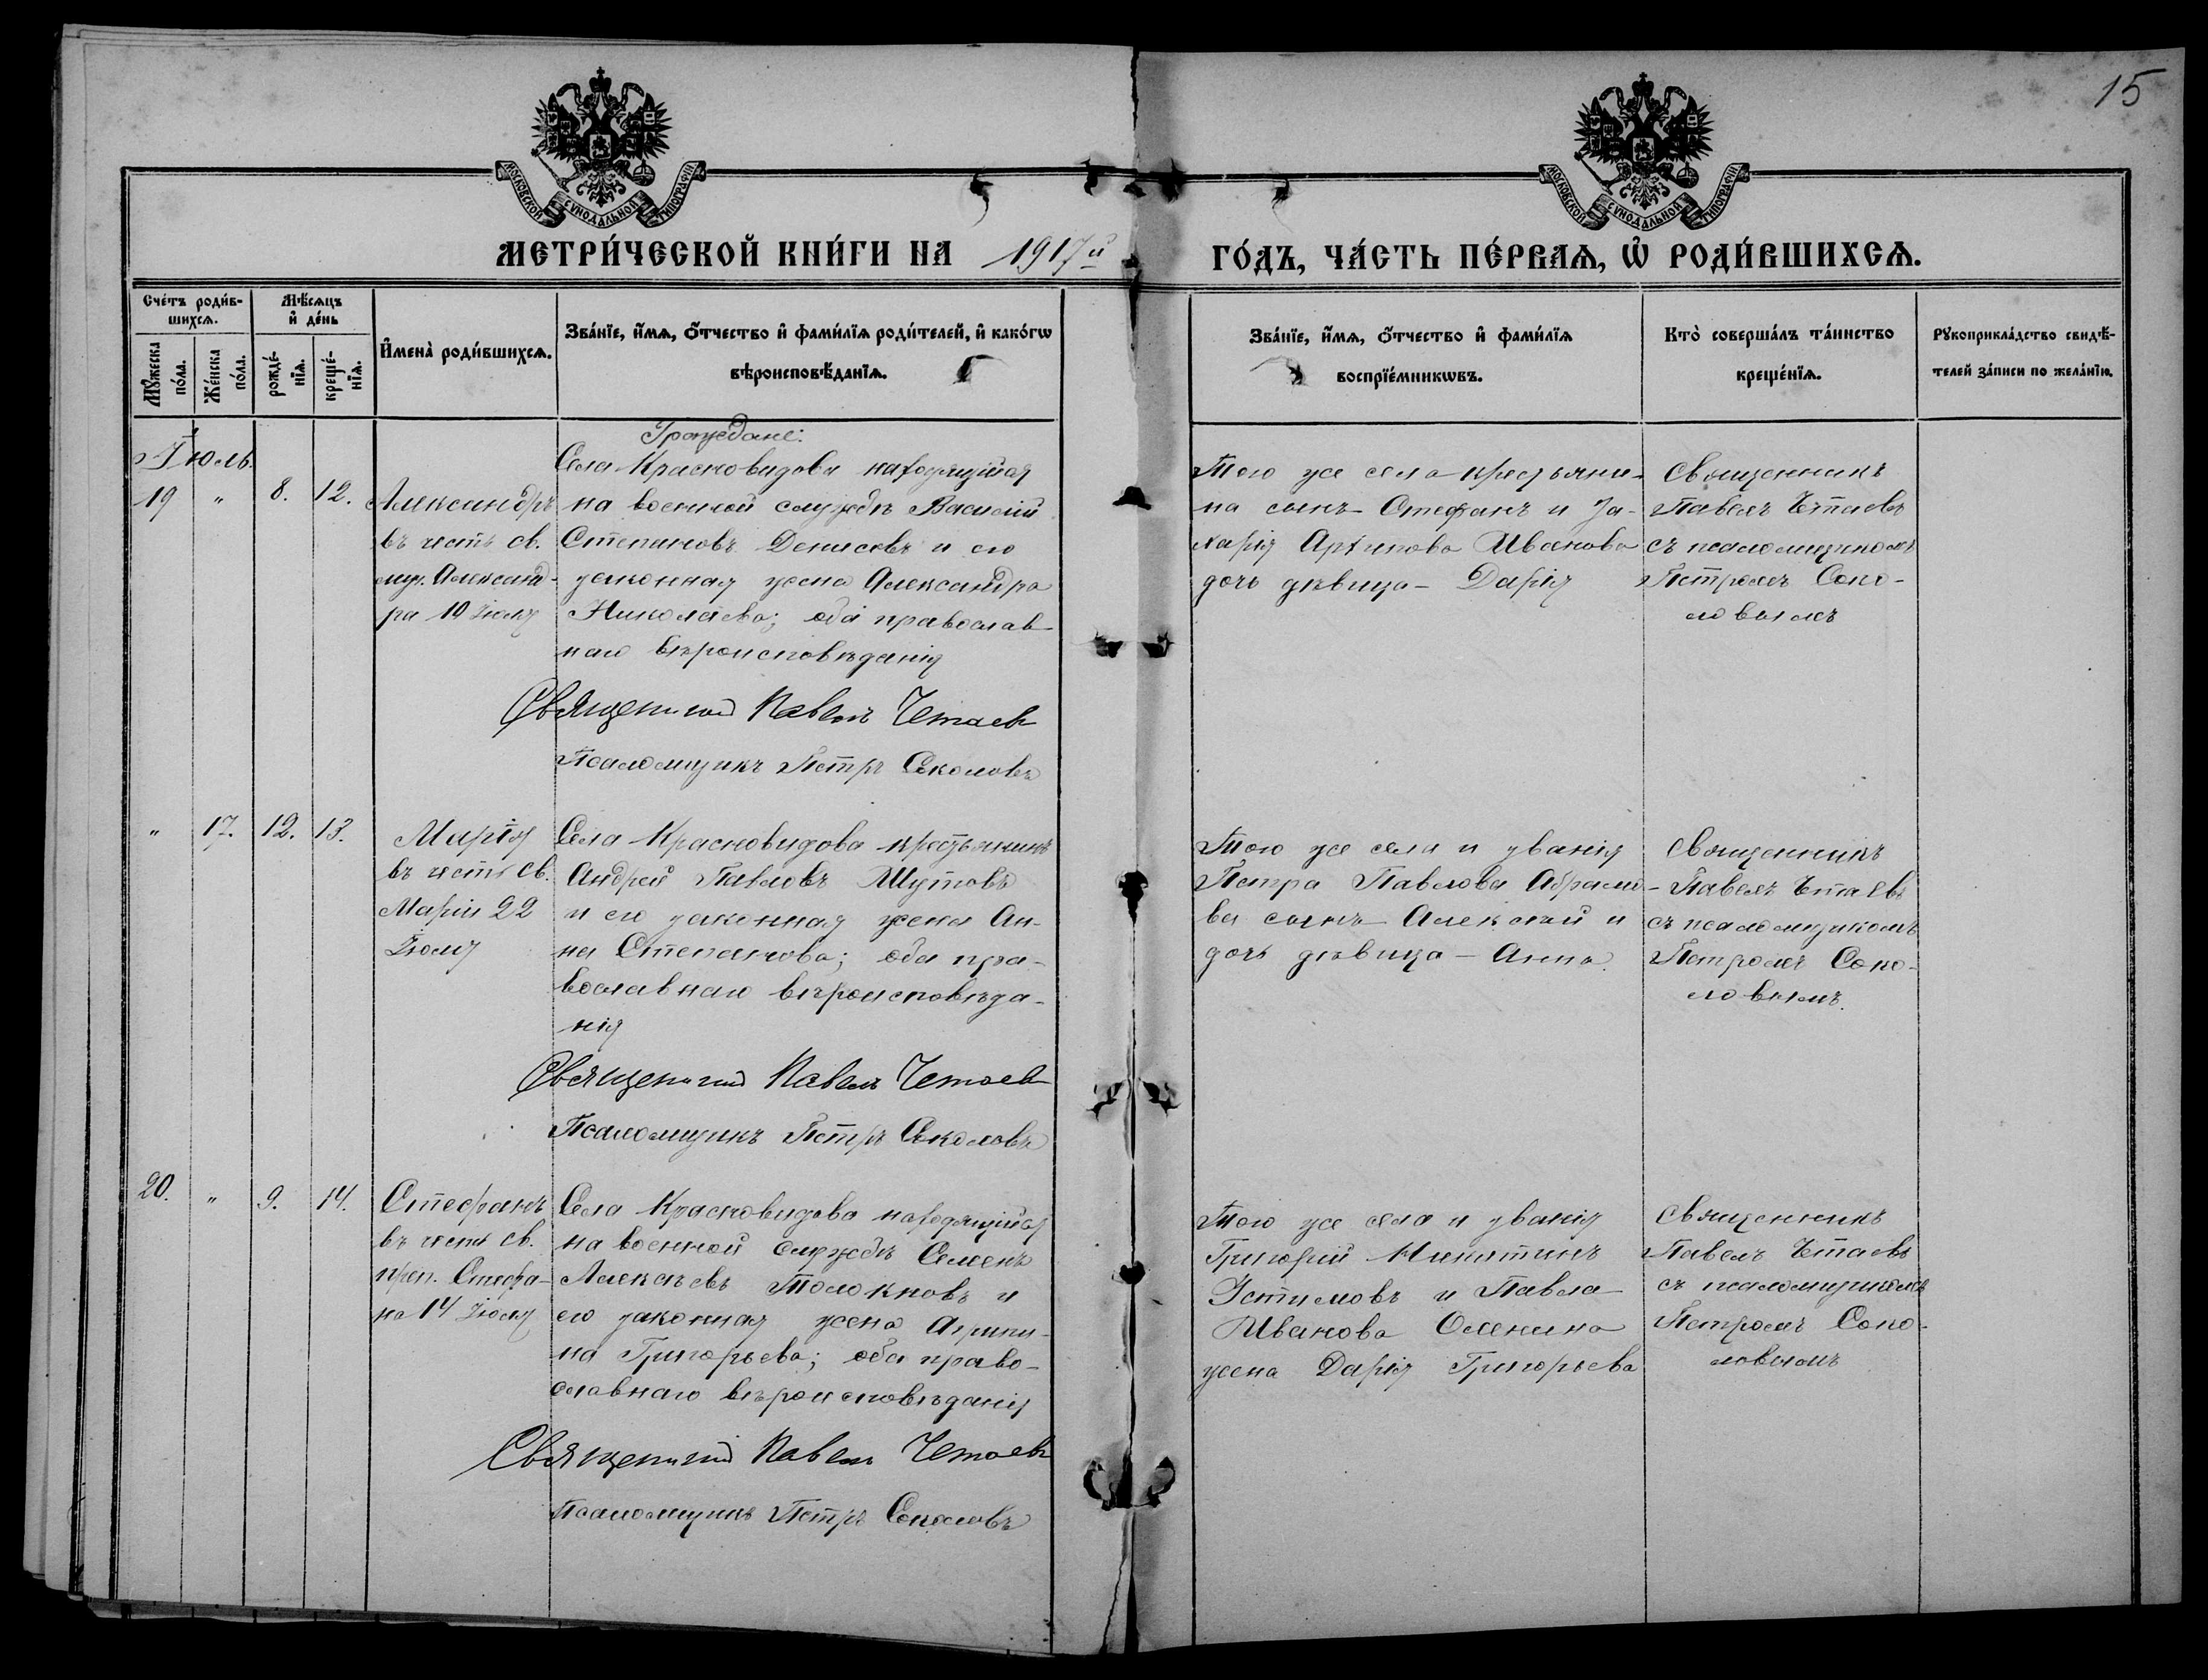 15
МОСКОВСКОЙ СѴНОДАЛЬНОЙ ТИПОГРАФІИ
МОСКОВСКОЙ СѴНОДАЛЬНОЙ ТИПОГРАФІИ
МЕТРИ́ЧЕСКОЙ КНИ́ГИ НА 1917й ГО́ДЪ, ЧА́СТЬ ПЕ́РВАѦ, Ѡ҆ РОДИ́ВШИХСѦ.
Сче́тъ роди́в-
шихсѧ.
Мꙋ́жеска по́ла.
Же́нска по́ла.
Мѣ́сѧцъ
и҆ де́нь
рожде́-
нїѧ.
креще́-
нїѧ.
И҆мена̀ роди́вшихсѧ.
Зва́нїе, и҆́мѧ, ѻ҆́тчество и҆ фами́лїѧ роди́телей, и҆ како́гѡ
вѣроисповѣ́данїѧ.
Зва́нїе, и҆́мѧ, ѻ҆́тчество и҆ фами́лїѧ
воспрїе́мникѡвъ.
Кто̀ соверша́лъ та́инство
креще́нїѧ.
Рꙋкоприкла́дство свидѣ́-
телей за́писи по жела́нїю.
Іюль.
19 " 8. 12.
Александръ
въ честь св.
муч. Александ-
ра 10 Іюля
Граждане:
Села Красновидова находящійся
на военной службѣ Василій
Степановъ Денисовъ и его
законная жена Александра
Николаева; оба православ-
наго вѣроисповѣданія
Священникъ Павелъ Четаевъ
Псаломщикъ Петръ Соколовъ
Того же села крестьяни-
на сынъ Стефанъ и За-
харія Архипова Иванова
дочь дѣвица - Дарія
Священникъ
Павелъ Четаевъ
съ псаломщикомъ
Петромъ Соко-
ловымъ
" 17. 12. 13.
Марія
въ честь св.
Маріи 22
Іюля
Села Красновидова крестьянинъ
Андрей Павловъ Шутовъ
и его законная жена Ан-
на Степанова; оба пра-
вославнаго вѣроисповѣда-
нія
Священникъ Павелъ Четаевъ
Псаломщикъ Петръ Соколовъ
Того же села и званія
Петра Павлова Абрамо-
ва сынъ Алексѣй и
дочь дѣвица - Анна.
Священникъ
Павелъ Четаевъ
съ псаломщикомъ
Петромъ Соко-
ловымъ.
20. " 9. 14.
Стефанъ
въ честь св.
преп. Стефа-
на 14 Іюля
Села Красновидова находящійся
на военной службѣ Семенъ
Алексѣевъ Толокновъ и
его законная жена Агрипи-
на Григорьева; оба право-
славнаго вѣроисповѣданія
Священникъ Павелъ Четаевъ
Псаломщикъ Петръ Соколовъ
Того же села и званія
Григорій Никитинъ
и Павла
Иванова Оленина
жена Дарія Григорьева
Священникъ
Павелъ Четаевъ
съ псаломщикомъ
Петромъ Соко-
ловымъ